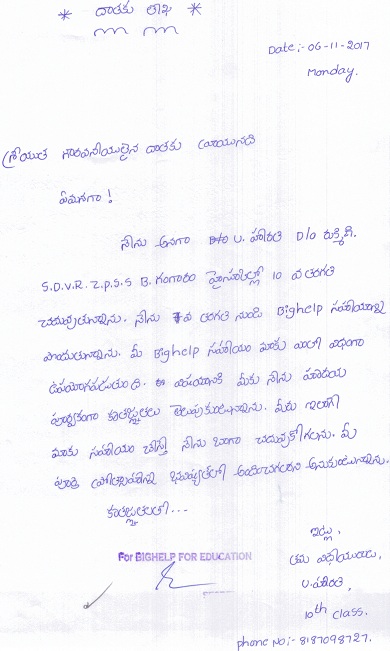 * దాతకు లేఖ *
Date:- 06-11-2017
Monday.
శ్రీయుత గౌరవనీయులైన దాతకు వ్రాయునది
ఏమనగా !
నేను అనగా U. హారతి D/o రుక్మిణి.
S.D.V.R. Z.P.S.S B. గంగారం హైస్కూల్లో 10 వ తరగతి
చదువుతున్నాను. నేను 7వ తరగతి నుండి Bighelp సహాయాన్ని
పొందుతున్నాను. మీ Bighelp సహాయం మాకు ఎంతో విధంగా
ఉపయోగపడుతుంది. ఈ విషయానికి మీకు నేను హృదయ
పూర్వకంగా కృతజ్ఞతలు తెలుపుకుంటున్నాను. మీరు ఇలాగే
మాకు సహాయం చేస్తే నేను బాగా చదువుకోగలను. మీ
పూర్తి ప్రోత్సాహాన్ని భవిష్యత్తులో అందించగలరని అనుకుంటున్నాను.
కృతజ్ఞతలతో...
ఇట్లు,
తమ విధేయురాలు,
U. హారతి,
10th class.
phone No:- 8187098727.
For BIGHELP FOR EDUCATION